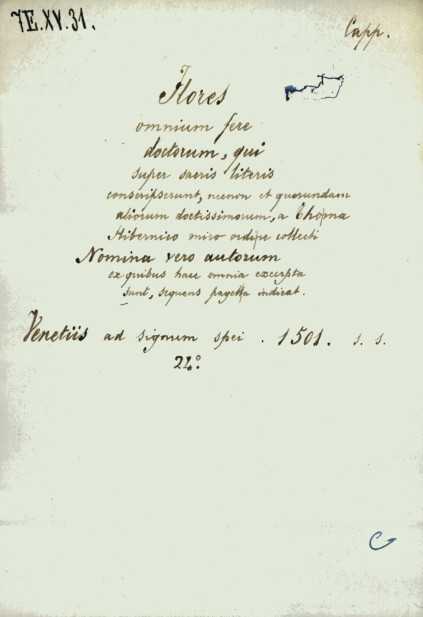 7E.XV.31.
Capp.
Flores
omnium fere
doctorum, qui
super sacris literis
conscripserunt, necnon et quorundam
aliorum doctissimorum, a Thoma
Hibernico miro ordine collecti
Nomina vero autorum
ex quibus haec omnia excerpta
sunt, sequens pagella indicat.
Venetiis ad signum spei . 1501. s. s.
24°